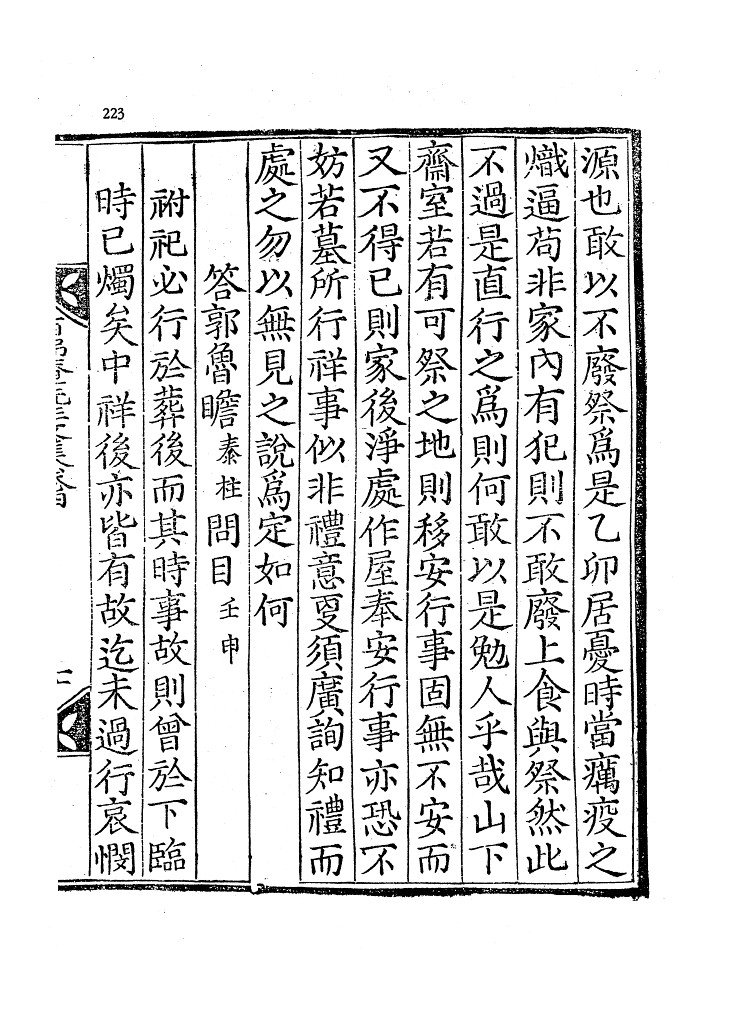 223
源也敢以不廢祭爲是乙卯居憂時當癘疫之
熾逼苟非家內有犯則不敢廢上食與祭然此
不過是直行之爲則何敢以是勉人乎哉山下
齋室若有可祭之地則移安行事固無不安而
又不得已則家後淨處作屋奉安行事亦恐不
妨若墓所行祥事似非禮意更須廣詢知禮而
處之勿以無見之說爲定如何
答郭魯瞻泰柱問目壬申
祔祀必行於葬後而其時事故則曾於下臨
時已燭矣中祥後亦皆有故迄未過行哀憫